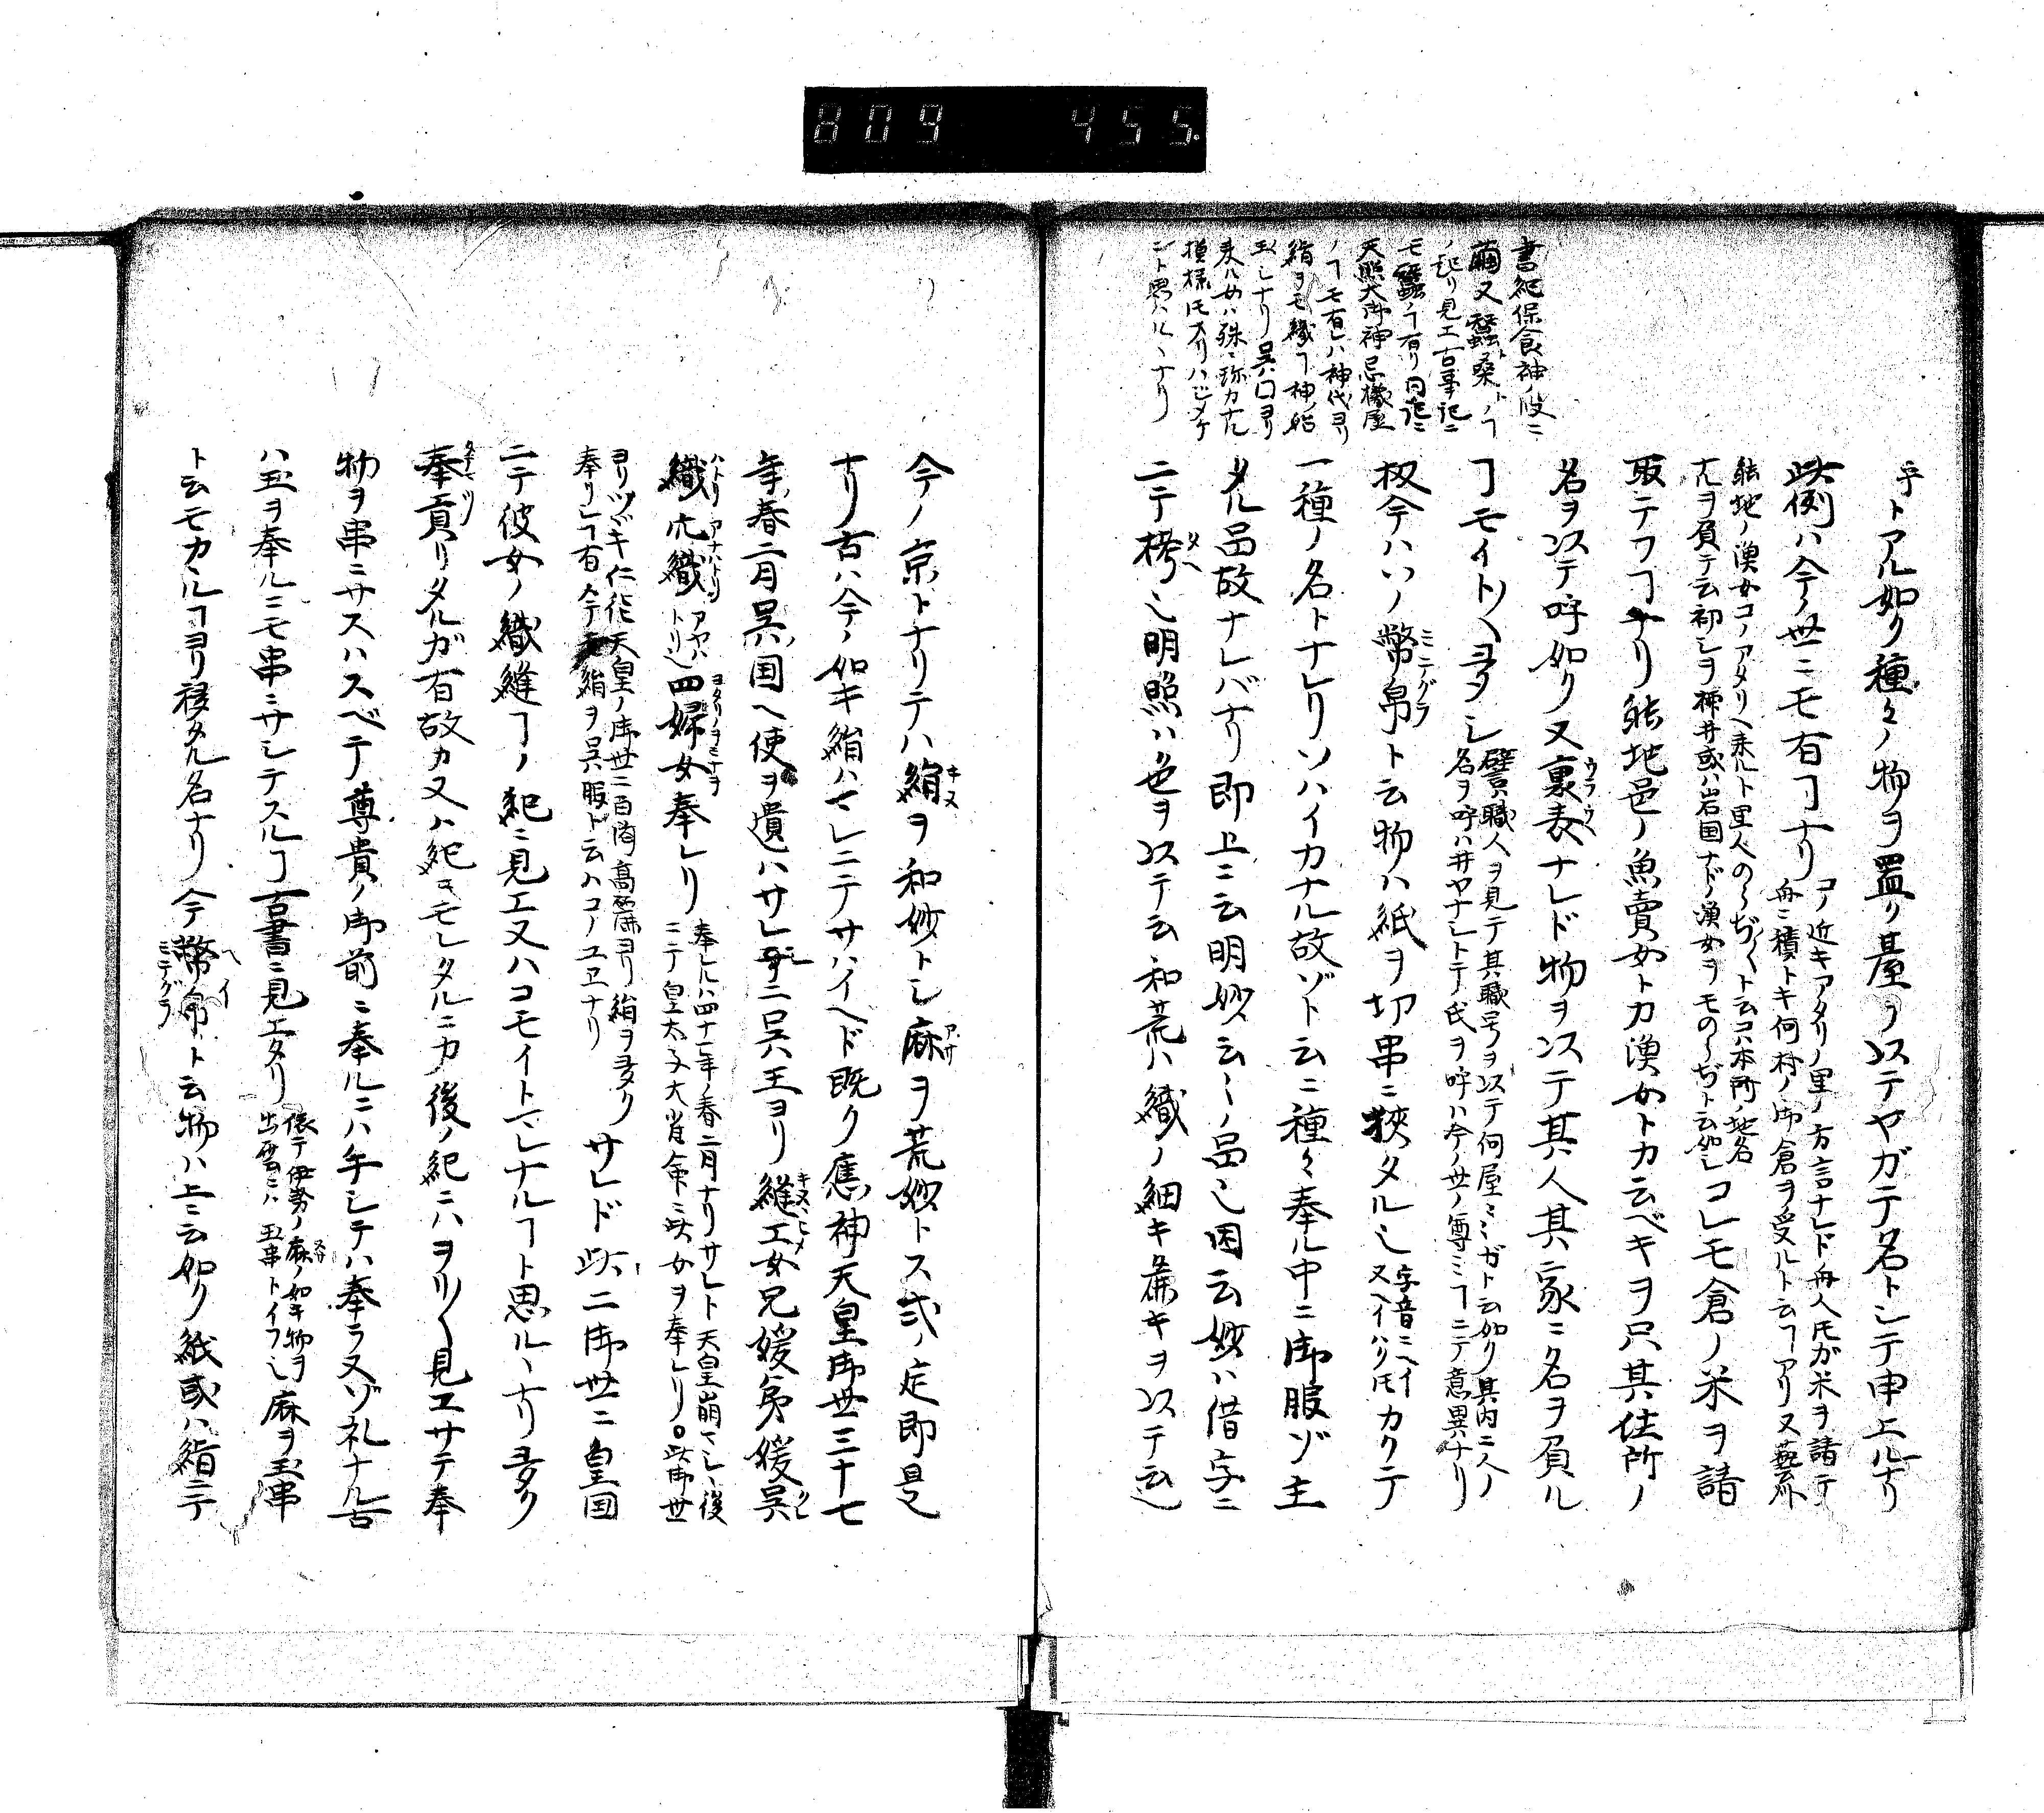 809 455.
書紀保食神ノ段ニ
繭又蠶桑トノヿ
ノ起リ見エ古事記ニ
モ蠶ノヿ有リ同記ニ
天照大御神忌機屋
ノヿモ有レハ神代ヨリ
絹ヲモ織ヿ神ノ始
玉シナリ呉国ヨリ
来ハ女ハ殊ニ珍カナル
模様氏
ニト思ハルヽナリ
トアル如ク種々ノ物ヲ置ク基ヲ以テヤガテ名トシテ申上ルナリ
此例ハ今ノ世ニモ有ヿナリ
コノ近キアタリノ里ノ方言ナレド舟人氏ガ米ヲ請テ
舟ニ積トキ何村ノ御倉ヲ受ルト云ヿアリ又
能地ノ漁女コノアタリヘ来ルト里人のうぢ〳〵ト云コハ本所ノ地名
ナルヲ負テ云初シヲ或ハ岩国ナドノ漁女ヲモのうぢト云如シ
コレモ倉ノ米ヲ請
取テフヿナリ能地邑ノ魚賣女トカ漁女トカ云ベキヲ只其住所ノ
名ヲ以テ呼如ク又裏表ナレド物ヲ以テ其人其家ニ名ヲ負ル
ヿモイト〳〵ヲヲシ
譬ハ職人ヲ見テ其職号ヲ以テ何屋ミミガト云如ク其内ニ人ノ
名ヲ呼ハ井ヤナシトテ氏ヲ呼ハ今ノ世ノ尊ミヿニテ意異ナリ
扨今ハソノ幣帛ト云物ハ紙ヲ切串ニ狹タル也
字音ニヘイ
又ヘイハク氏
カクテ
一種ノ名トナレリソハイカナル故ゾト云ニ種々奉ル中ニ御服ゾ主
タル品故ナレバナリ即上ニ云明妙云々ノ品也因云妙ハ借字ニ
ニテ栲也明照ハ色ヲ以テ云和荒ハ織ノ細キ麁キヲ以テ云
今ノ京トナリテハ絹ヲ和妙トシ麻ヲ荒妙トス式ノ定即是
ナリ古ハ今ノ如キ絹ハマレニテサハイヘド既ク應神天皇御世三十七
年春二月呉国ヘ使ヲ遣ハサレシニ呉王ヨリ縫工女兄媛弟媛呉
織穴織四婦女奉レリ
奉レルハ四十一年ノ春二月ナリサレト天皇崩マシヽ後
ニテ皇太子大鷦命ニ此女ヲ奉レリ○此御世
ヨリツヾキ仁徳天皇ノ御世ニ百済高麗ヨリ絹ヲ多ク
奉リシヿ有今モ絹ヲ呉服ト云ハコノユヱナリ
サレド此二御世ニ皇国
ニテ彼女ノ織縫ヿノ紀ニ見エ又ハコモイトマレナルヿト思ルヽナリ多ク
奉貢リタルガ有故カ又ハ紀ニモレタルニカ後ノ紀ニハヲリ〳〵見エサテ奉
物ヲ串ニサスハスベテ尊貴ノ御前ニ奉ルニハ手シテハ奉ラヌゾ礼ナル古
ハ玉ヲ奉ルニモ串ニサシテスルヿ古書ニ見エタリ
依テ伊勢ノ麻ノ如キ物ヲ
出雲ニハ玉串トイフ也
麻ヲ玉串
ト云モカヽルヿヨリ移タル名ナリ今幣帛ト云物ハ上ニ云如ク紙或ハ絹ニテ